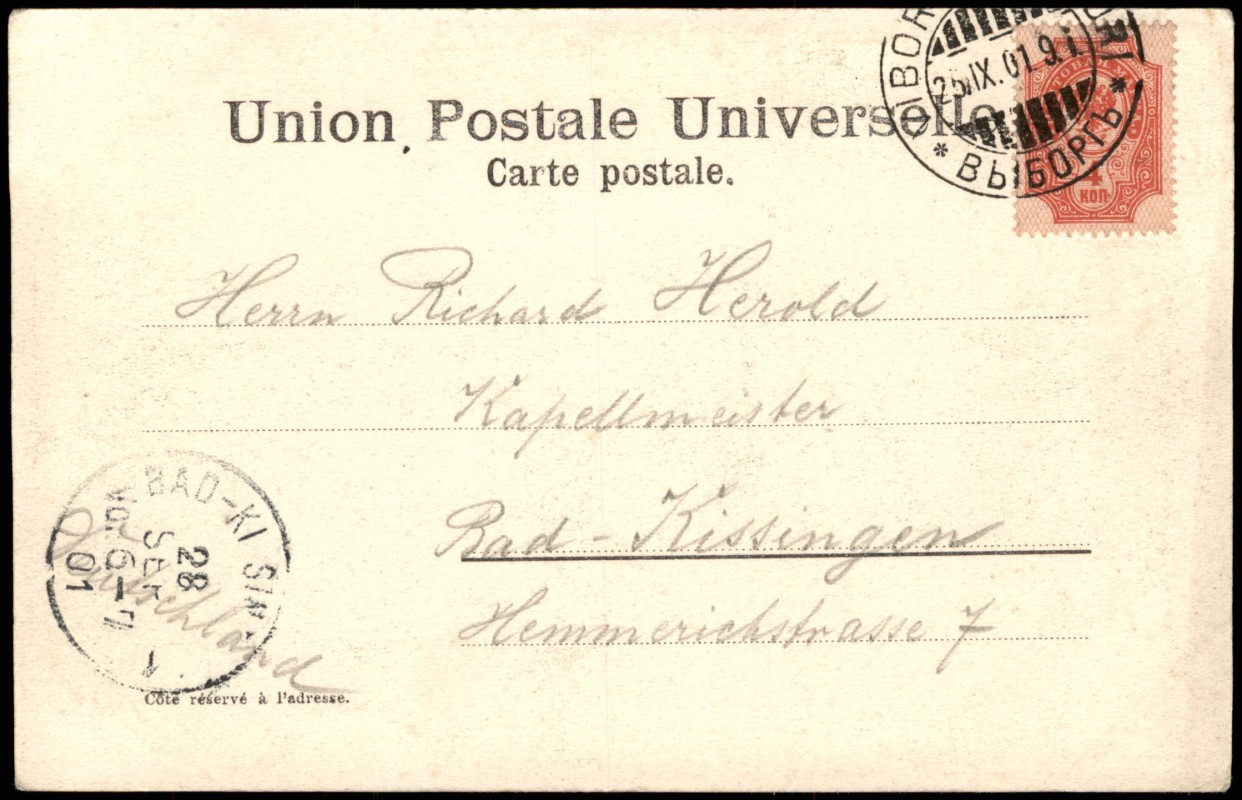 Union Postale Universelle
Carte postale.
25.IX.01 9
ВЫБОРГЪ
4
КОП
Herrn Richard Herold
Kapellmeister
Bad-Kissingen
Hemmerichstrasse 7
BAD-KI SIN
28
SEP
6-7
01
Deutschland
Côté réservé à l'adresse.